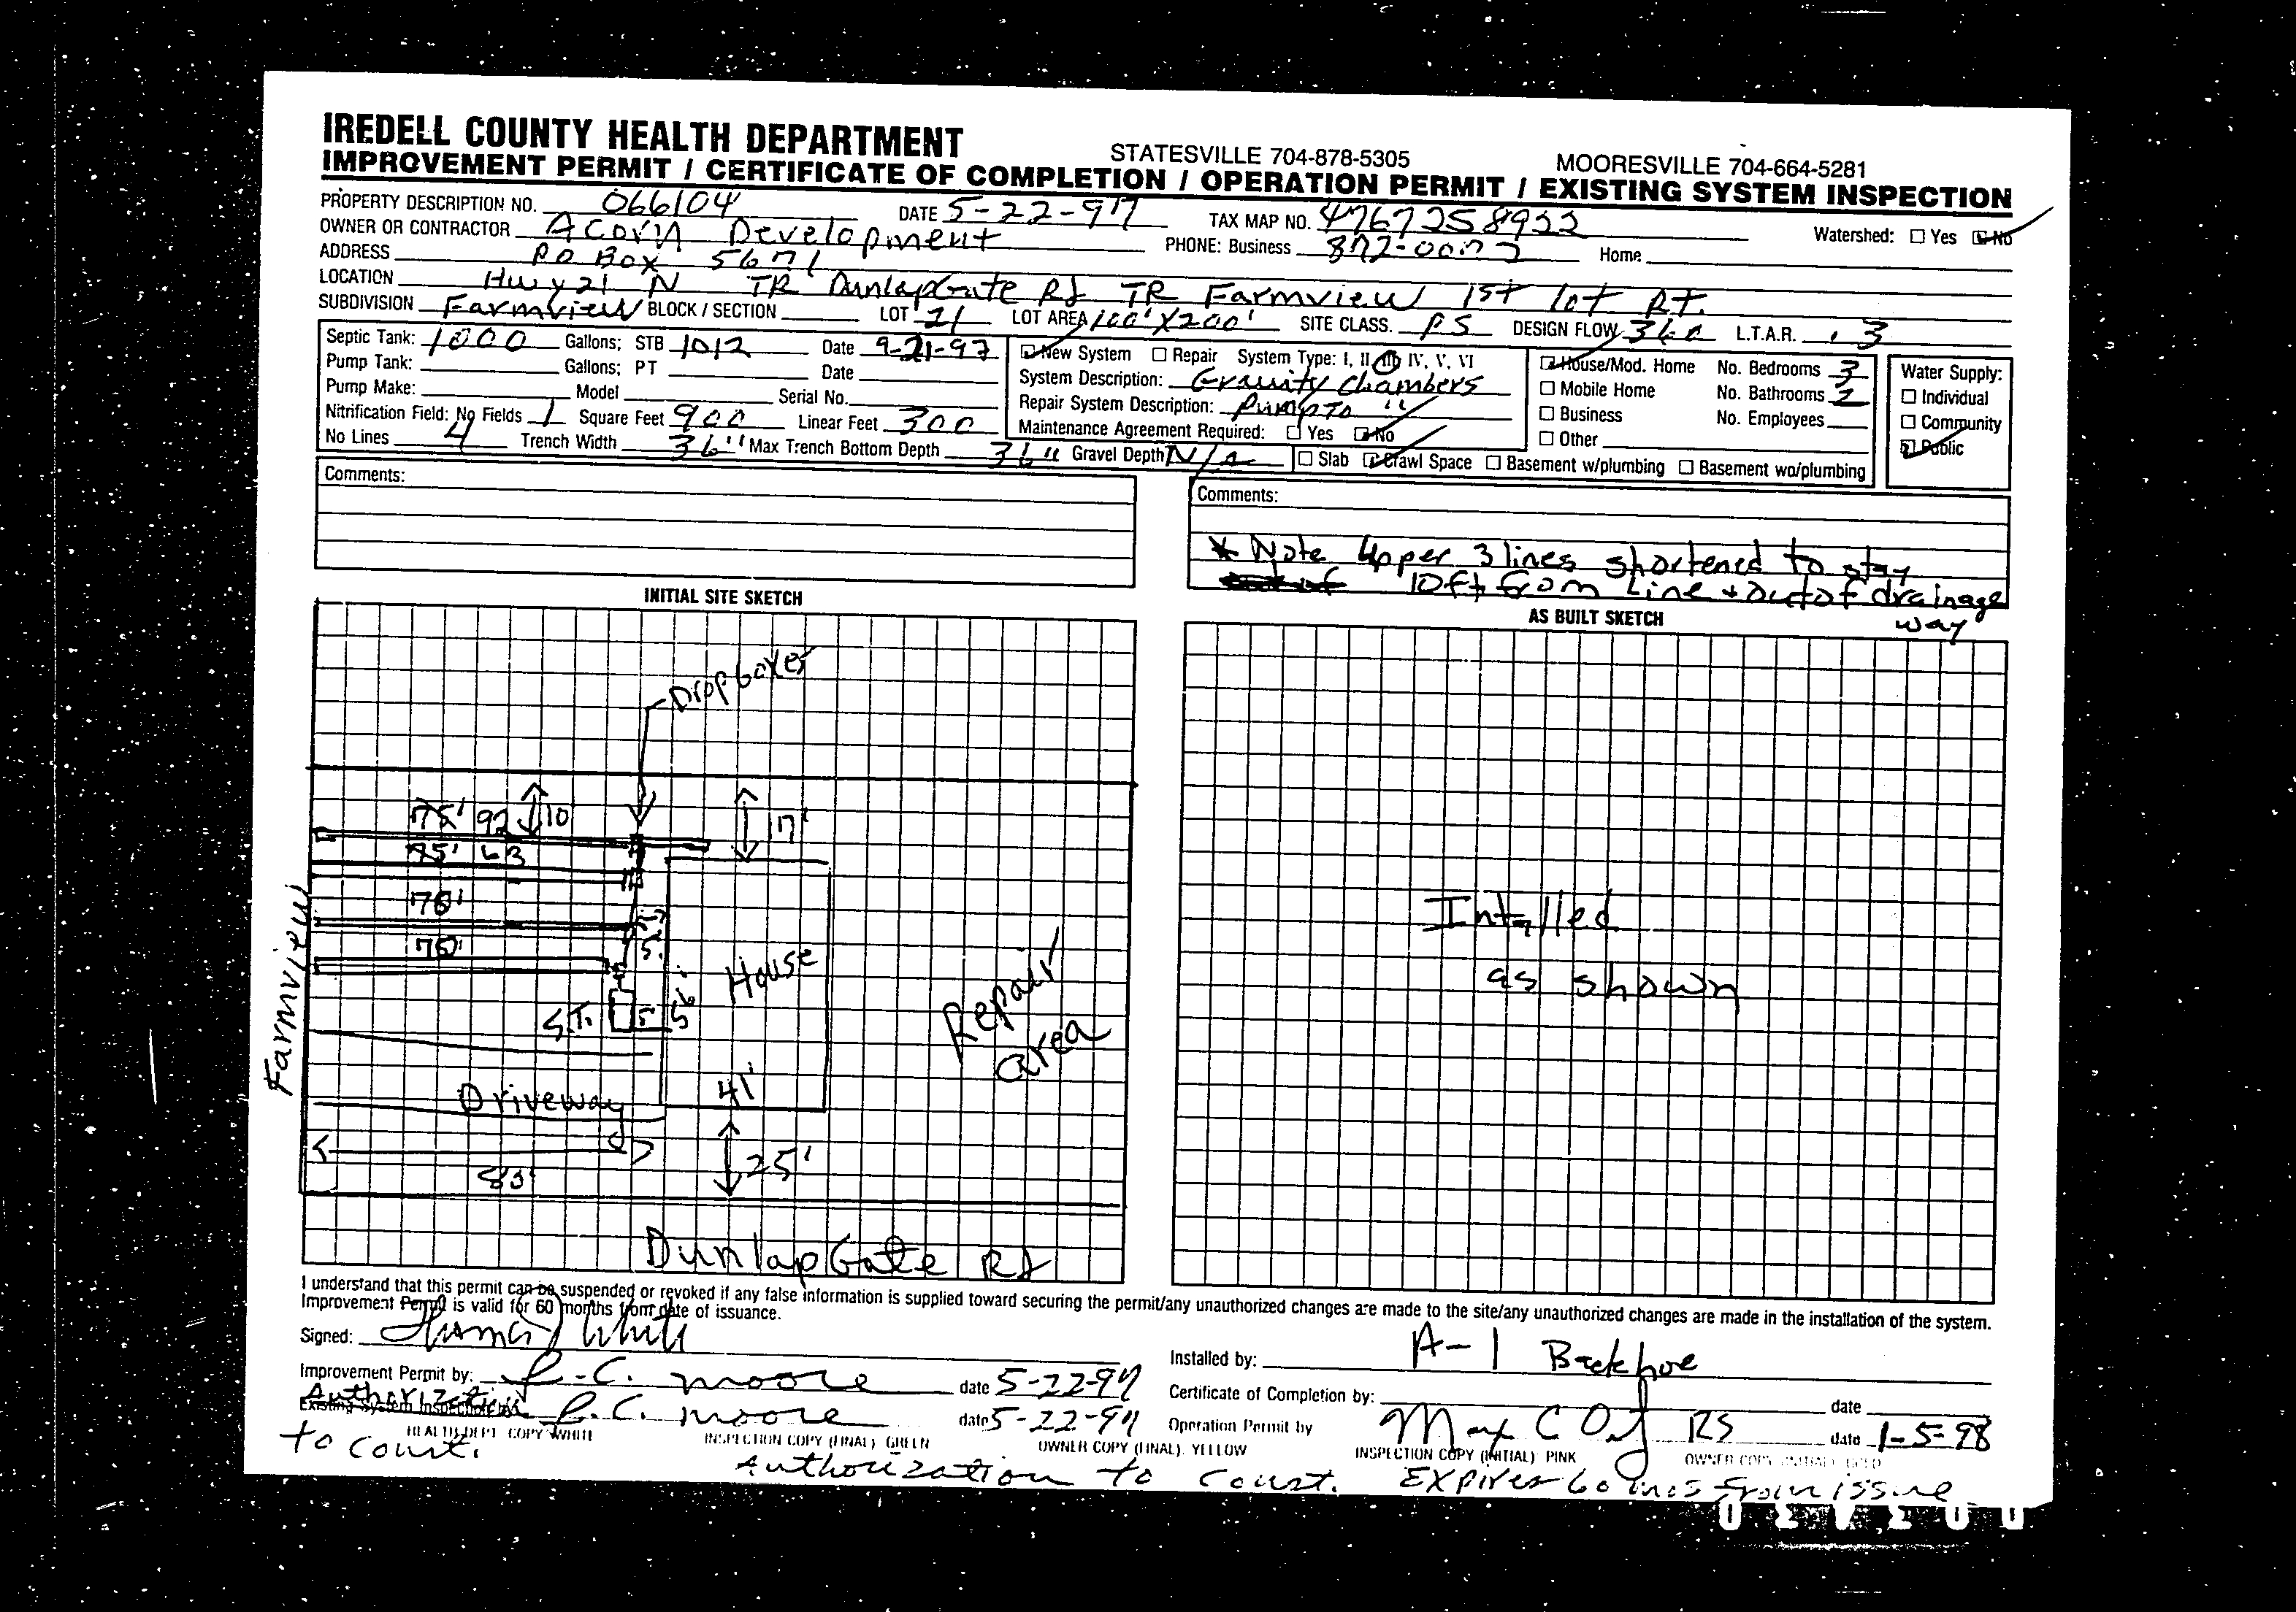 IREDELL COUNTY HEALTH DEPARTMENT STATESVILLE 704-878-5305 MOORESVILLE 704-664-5281
IMPROVEMENT PERMIT / CERTIFICATE OF COMPLETION / OPERATION PERMIT / EXISTING SYSTEM INSPECTION
PROPERTY DESCRIPTION NO. 066104 DATE 5-22-97 TAX MAP NO. 4767258922 Watershed: Yes No
OWNER OR CONTRACTOR Acorn Development PHONE: Business Home
ADDRESS PO Box 5671
LOCATION Hwy 21 N TR DunlapGate Rd TR Farmview 1st lot Rt.
SUBDIVISION Farmview BLOCK / SECTION LOT 21 LOT AREA 100'X200' SITE CLASS. PS DESIGN FLOW 360 L.T.A.R. .3
Septic Tank: 1000 Gallons; STB 1012 Date 9-21-97
Pump Tank: Gallons; PT Date
Pump Make: Model Serial No.
Nitrification Field: No Fields 1 Square Feet 900 Linear Feet 300
No Lines 4 Trench Width 36" Max Trench Bottom Depth 36" Gravel Depth N/A
New System Repair System Type: I, II, III, IV, V, VI
System Description: Gravity Chambers
Repair System Description: Pump to "
Maintenance Agreement Required: Yes No
Slab Crawl Space Basement w/plumbing Basement wo/plumbing
House/Mod. Home No. Bedrooms 3
Mobile Home No. Bathrooms 2
Business No. Employees
Other
Water Supply:
Individual
Community
Public
Comments:
Comments:
* Note Upper 3 lines shortened to stay
10ft from Line + out of drainage
way
INITIAL SITE SKETCH
Drop boxes
75' 92 10
17'
75' 63
75'
5'
75'
House
S.T. 5' 56'
Farmview
Repair
area
Driveway 41'
83' 25'
DunlapGate Rd
AS BUILT SKETCH
Intalled
as shown
I understand that this permit can be suspended or revoked if any false information is supplied toward securing the permit/any unauthorized changes are made to the site/any unauthorized changes are made in the installation of the system.
Improvement Permit is valid for 60 months from date of issuance.
Signed:
Installed by: A-1 Backhoe
Improvement Permit by: R.C. Moore date 5-22-97
Certificate of Completion by: date
Authorization
Existing System Inspection by R.C. Moore date 5-22-97
Operation Permit by RS date 1-5-98
to const.
HEALTH DEPT. COPY WHITE INSPECTION COPY (FINAL) GREEN OWNER COPY (FINAL) YELLOW INSPECTION COPY (INITIAL) PINK OWNER COPY (INITIAL) GOLD
Authorization to const. Expires 60 mos from issue